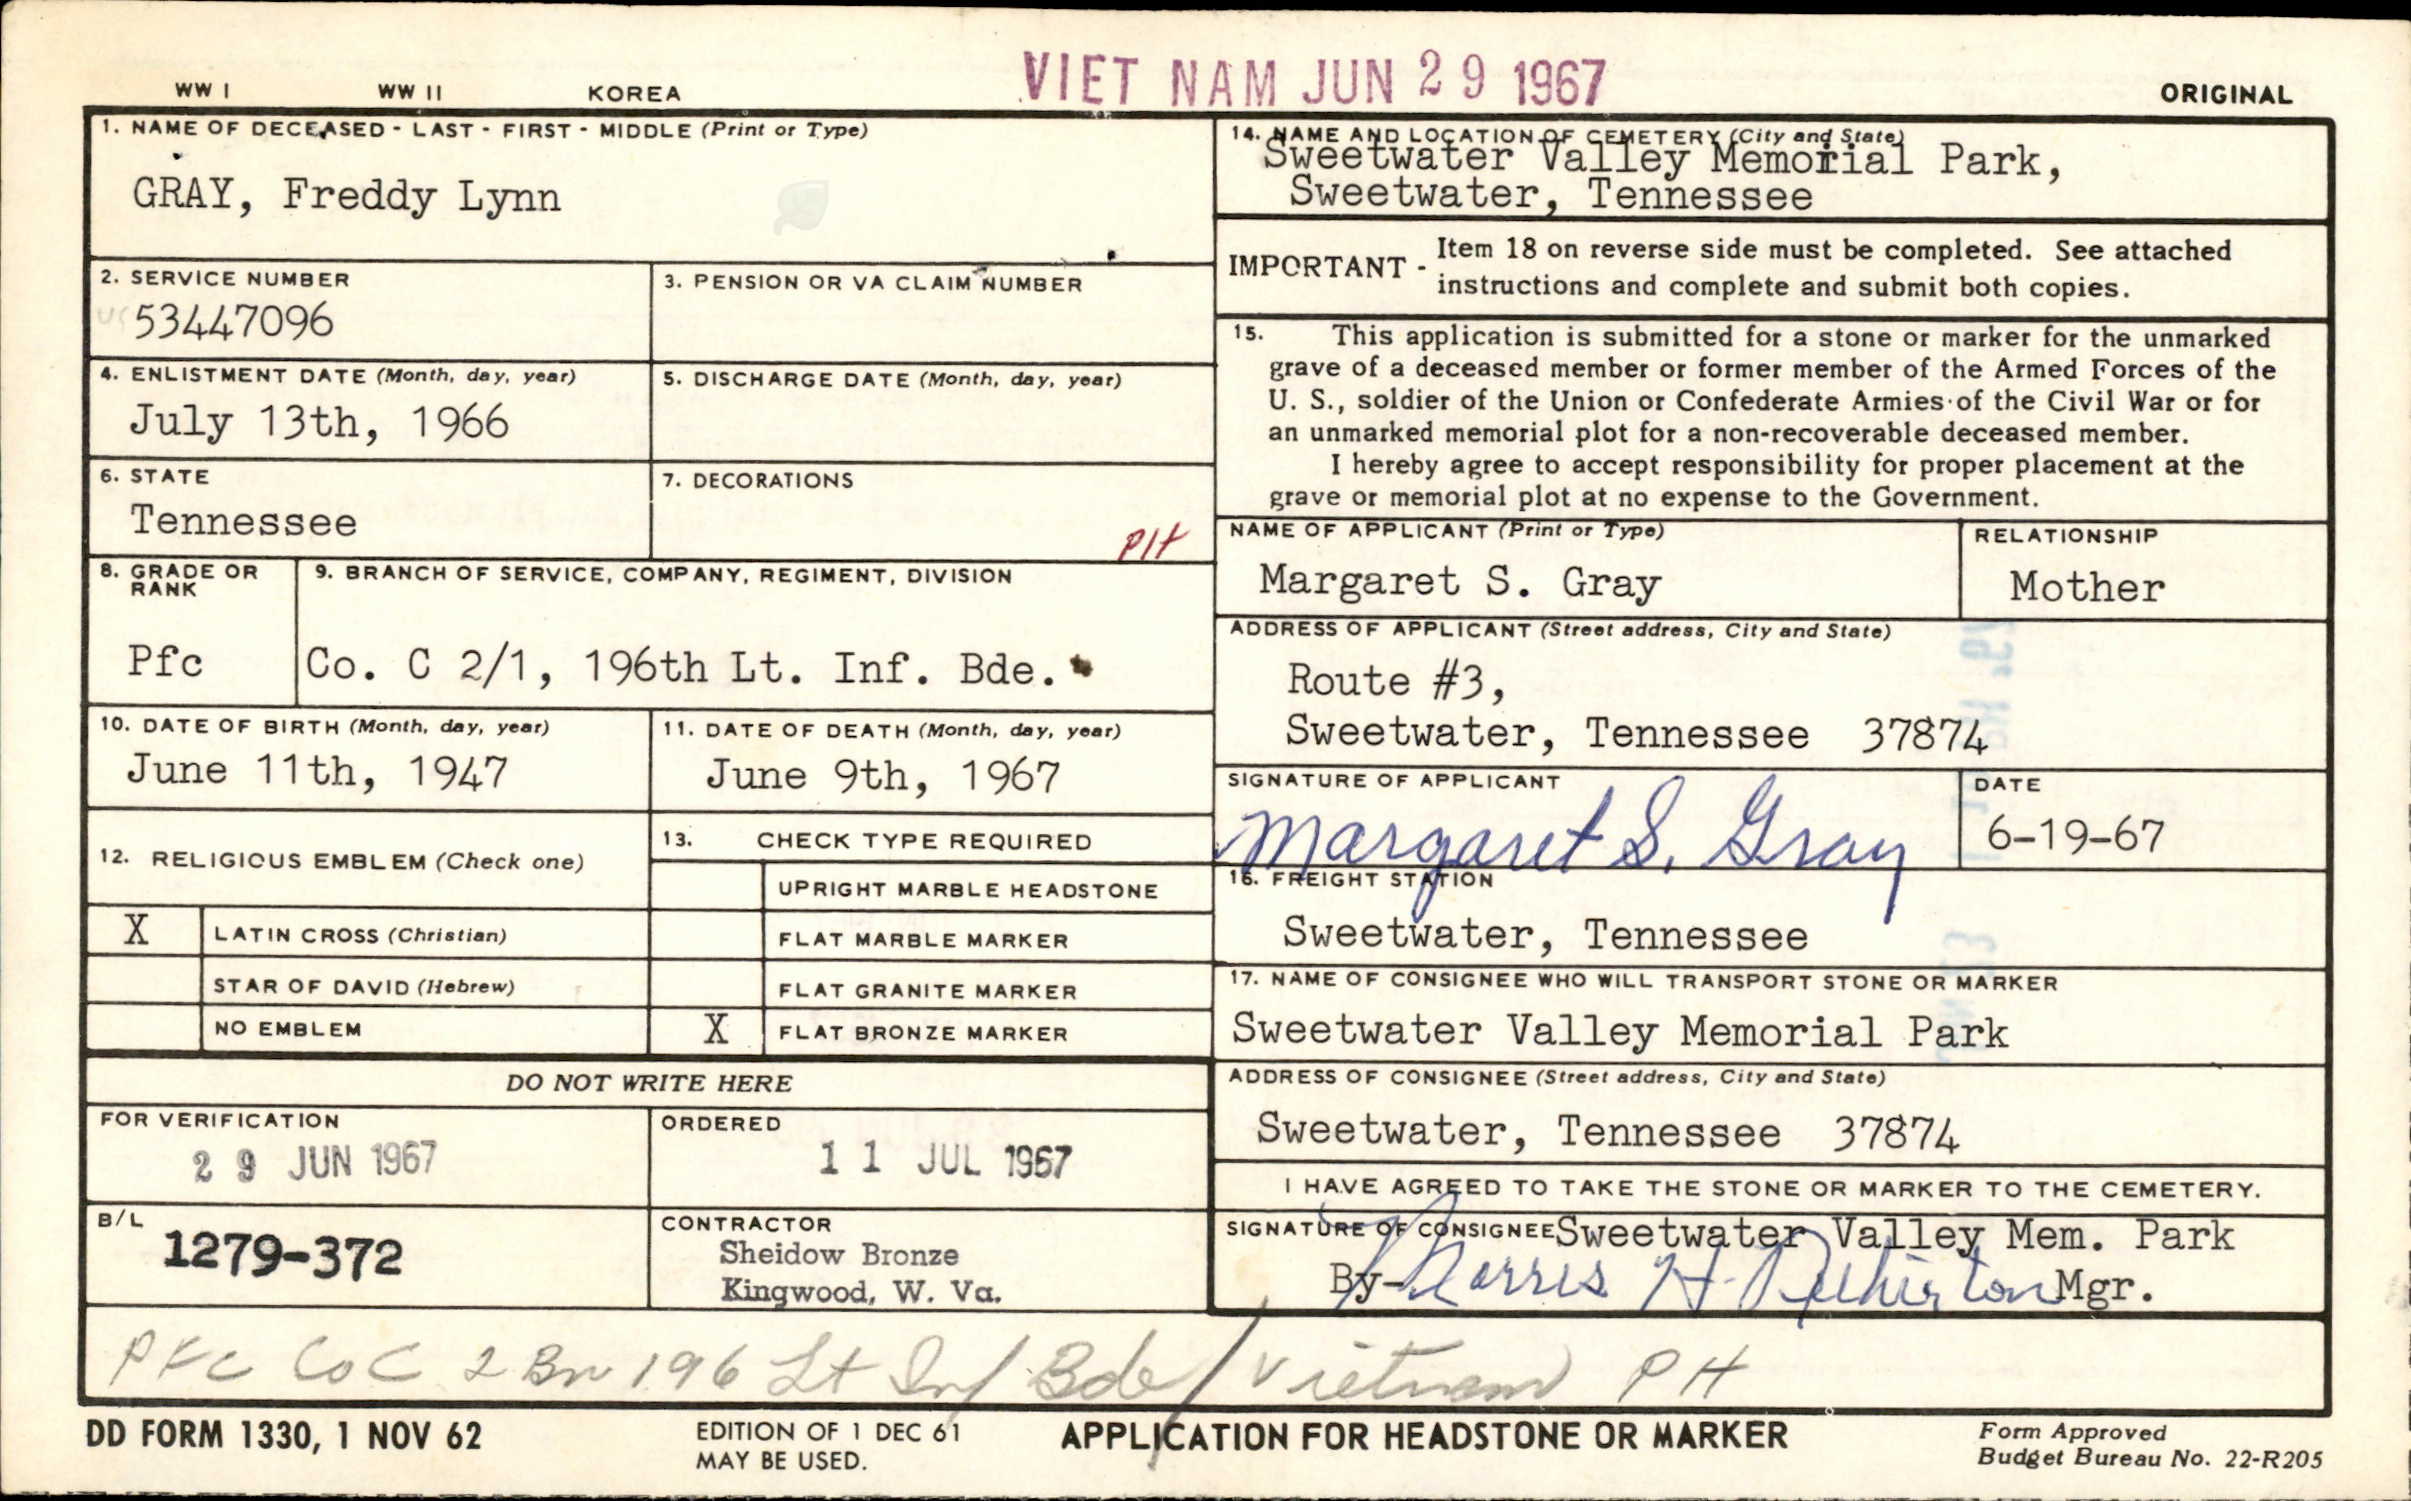 WW I WW II KOREA VIET NAM JUN 29 1967 ORIGINAL
1. NAME OF DECEASED - LAST - FIRST - MIDDLE (Print or Type)
GRAY, Freddy Lynn
2. SERVICE NUMBER
US 53447096
3. PENSION OR VA CLAIM NUMBER
4. ENLISTMENT DATE (Month, day, year)
July 13th, 1966
5. DISCHARGE DATE (Month, day, year)
6. STATE
Tennessee
7. DECORATIONS
PH
8. GRADE OR
RANK
Pfc
9. BRANCH OF SERVICE, COMPANY, REGIMENT, DIVISION
Co. C 2/1, 196th Lt. Inf. Bde.
10. DATE OF BIRTH (Month, day, year)
June 11th, 1947
11. DATE OF DEATH (Month, day, year)
June 9th, 1967
12. RELIGIOUS EMBLEM (Check one)
X LATIN CROSS (Christian)
STAR OF DAVID (Hebrew)
NO EMBLEM
13. CHECK TYPE REQUIRED
UPRIGHT MARBLE HEADSTONE
FLAT MARBLE MARKER
FLAT GRANITE MARKER
X FLAT BRONZE MARKER
DO NOT WRITE HERE
FOR VERIFICATION
29 JUN 1967
ORDERED
11 JUL 1967
B/L
1279-372
CONTRACTOR
Sheidow Bronze
Kingwood, W. Va.
14. NAME AND LOCATION OF CEMETERY (City and State)
Sweetwater Valley Memorial Park,
Sweetwater, Tennessee
IMPORTANT - Item 18 on reverse side must be completed. See attached
instructions and complete and submit both copies.
15. This application is submitted for a stone or marker for the unmarked
grave of a deceased member or former member of the Armed Forces of the
U. S., soldier of the Union or Confederate Armies of the Civil War or for
an unmarked memorial plot for a non-recoverable deceased member.
I hereby agree to accept responsibility for proper placement at the
grave or memorial plot at no expense to the Government.
NAME OF APPLICANT (Print or Type)
Margaret S. Gray
RELATIONSHIP
Mother
ADDRESS OF APPLICANT (Street address, City and State)
Route #3,
Sweetwater, Tennessee 37874
SIGNATURE OF APPLICANT
Margaret S. Gray
DATE
6-19-67
16. FREIGHT STATION
Sweetwater, Tennessee
17. NAME OF CONSIGNEE WHO WILL TRANSPORT STONE OR MARKER
Sweetwater Valley Memorial Park
ADDRESS OF CONSIGNEE (Street address, City and State)
Sweetwater, Tennessee 37874
I HAVE AGREED TO TAKE THE STONE OR MARKER TO THE CEMETERY.
SIGNATURE OF CONSIGNEE Sweetwater Valley Mem. Park
By- Morris H. Mgr.
PFC Co C 2 Bn 196 Lt Inf Bde / Vietnam PH
DD FORM 1330, 1 NOV 62
EDITION OF 1 DEC 61
MAY BE USED.
APPLICATION FOR HEADSTONE OR MARKER
Form Approved
Budget Bureau No. 22-R205